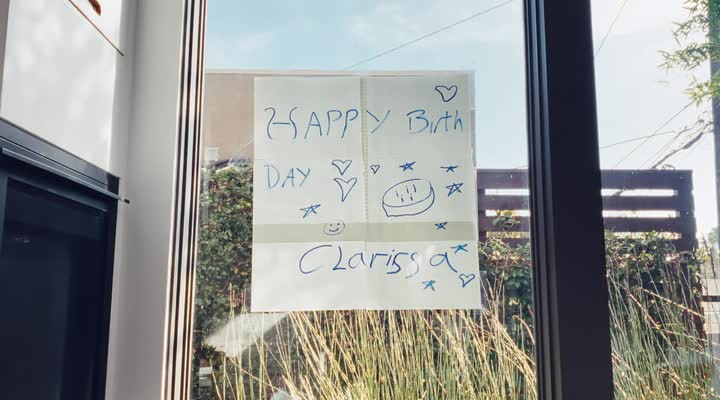 HAPPY Birth
DAY
Clarissa